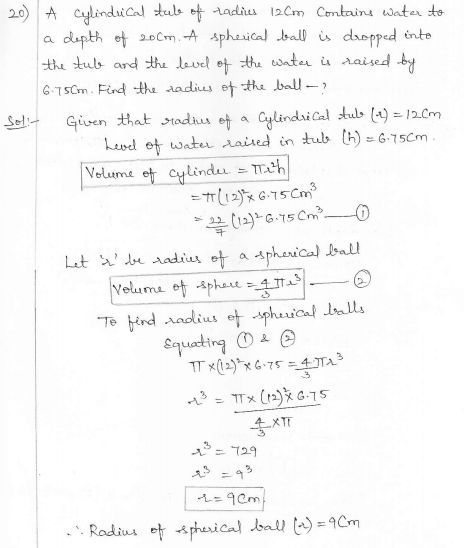 20) A Cylindrical tub of radius 12Cm Contains Water to
a depth of 20Cm. A spherical ball is dropped into
the tub and the level of the water is raised by
6.75Cm. Find the radius of the ball - ?
Sol:- Given that radius of a Cylindrical tub (r) = 12Cm
Level of water raised in tub (h) = 6.75Cm.
Volume of cylinder = πr²h
= π(12)² x 6.75 Cm³
= 22/7 (12)² 6.75 Cm³ — ①
Let 'r' be radius of a spherical ball
Volume of sphere = 4/3 πr³ — ②
To find radius of spherical balls
Equating ① & ②
π x (12)² x 6.75 = 4/3 πr³
r³ = π x (12)² x 6.75 / 4/3 x π
r³ = 729
r³ = 9³
r = 9Cm
∴ Radius of spherical ball (r) = 9Cm